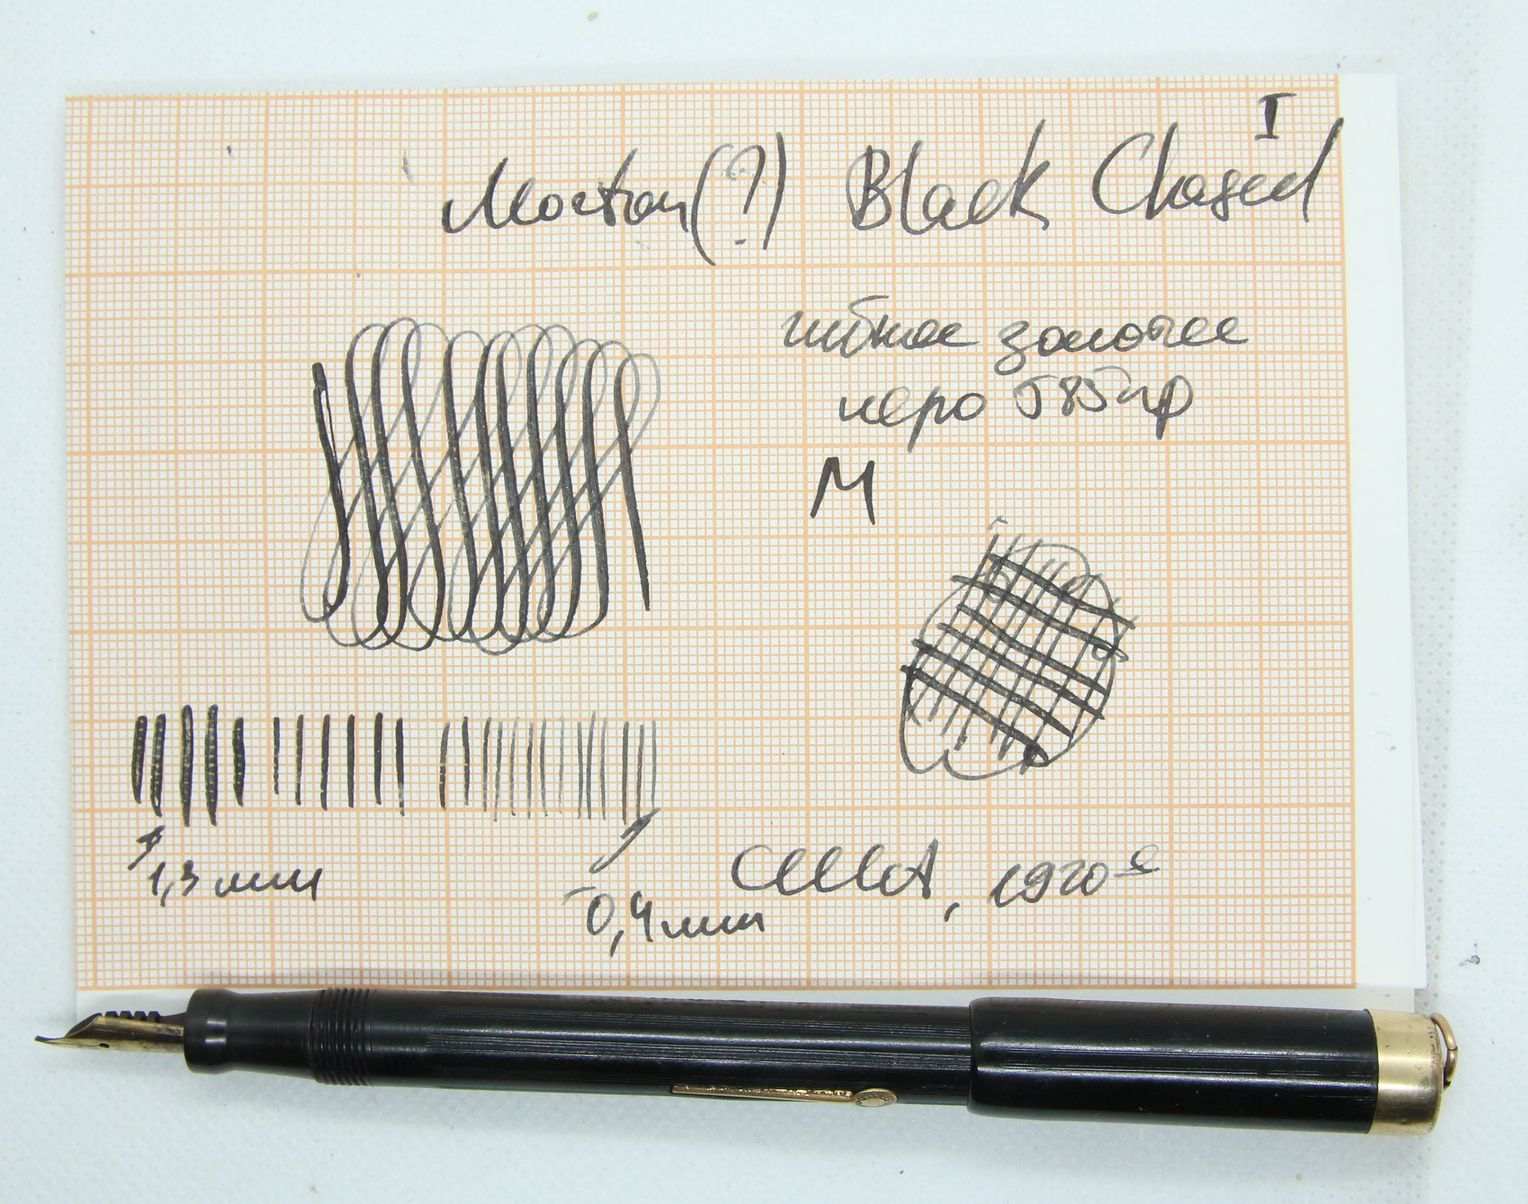 I
Morton(?) Black Chased
гибкое золотое
перо 585 пр
M
1,3 мм
0,4 мм
США, 1920-е